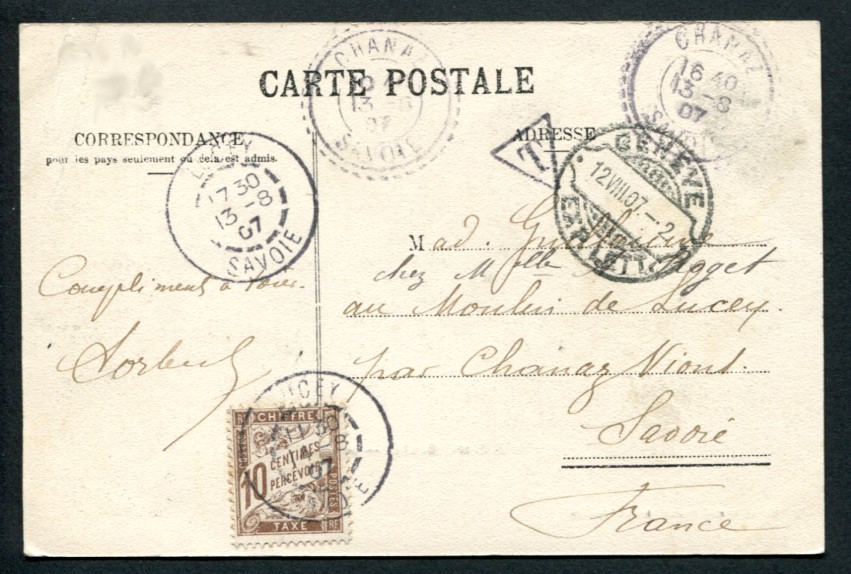 CARTE POSTALE
CORRESPONDANCE
pour les pays seulement où cela est admis.
ADRESSE
CHANAZ
13 -8
07
SAVOIE
CHANAZ
16 40
13 -8
07
SAVOIE
T
GENÈVE
12.VIII.07.-2
EXP. LETT.
LUCEY
17 30
13 -8
07
SAVOIE
Compliments à tous.
Mad. Guillerme
chez Melle
au Moulin de Lucey.
par Chanaz Viont.
Savoie
France
LUCEY
30
-8
07
SAVOIE
CHIFFRE
10
CENTIMES
A PERCEVOIR
POSTES
TAXE
RF